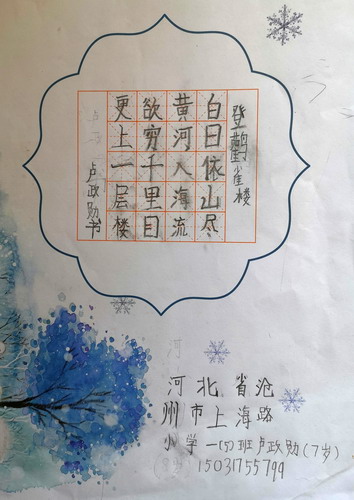 登鹳雀楼
白日依山尽
黄河入海流
欲穷千里目
更上一层楼
卢政勋书
河北省沧
州市上海路
小学一(5)班卢政勋(7岁)
15031755799